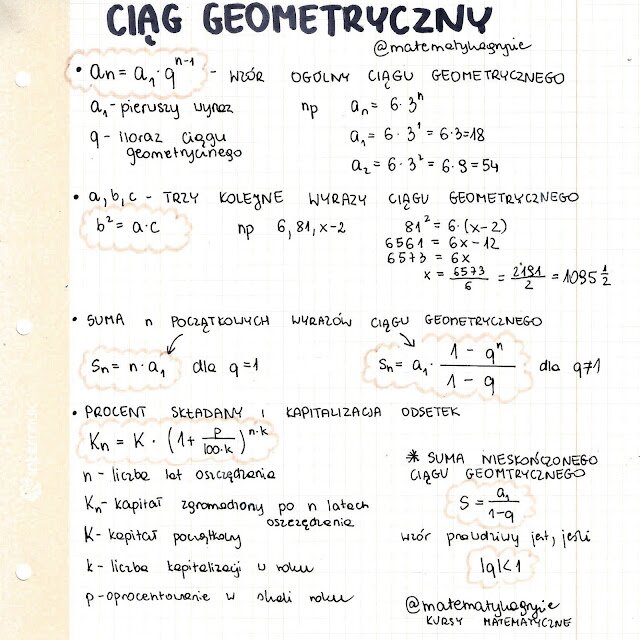 CIĄG GEOMETRYCZNY
@matematykagryzie
• an = a₁·qⁿ⁻¹ - WZÓR OGÓLNY CIĄGU GEOMETRYCZNEGO
a₁ - pierwszy wyraz np an = 6·3ⁿ
q - iloraz ciągu geometrycznego
a₁ = 6·3¹ = 6·3=18
a₂ = 6·3² = 6·9 = 54
• a, b, c - TRZY KOLEJNE WYRAZY CIĄGU GEOMETRYCZNEGO
b² = a·c np 6, 81, x-2 81² = 6·(x-2)
6561 = 6x - 12
6573 = 6x
x = 6573/6 = 2191/2 = 1095 1/2
• SUMA n POCZĄTKOWYCH WYRAZÓW CIĄGU GEOMETRYCZNEGO
Sn = n·a₁ dla q=1 Sn = a₁· (1 - qⁿ)/(1 - q) dla q≠1
• PROCENT SKŁADANY I KAPITALIZACJA ODSETEK
Kn = K · (1 + p/(100·k))ⁿ·ᵏ
n - liczba lat oszczędzania
Kn - kapitał zgromadzony po n latach
oszczędzania
K - kapitał początkowy
k - liczba kapitalizacji w roku
p - oprocentowanie w skali roku
* SUMA NIESKOŃCZONEGO
CIĄGU GEOMTRYCZNEGO
S = a₁/(1-q)
wzór prawdziwy jest, jeśli
|q|<1
@matematykagryzie
KURSY MATEMATYCZNE